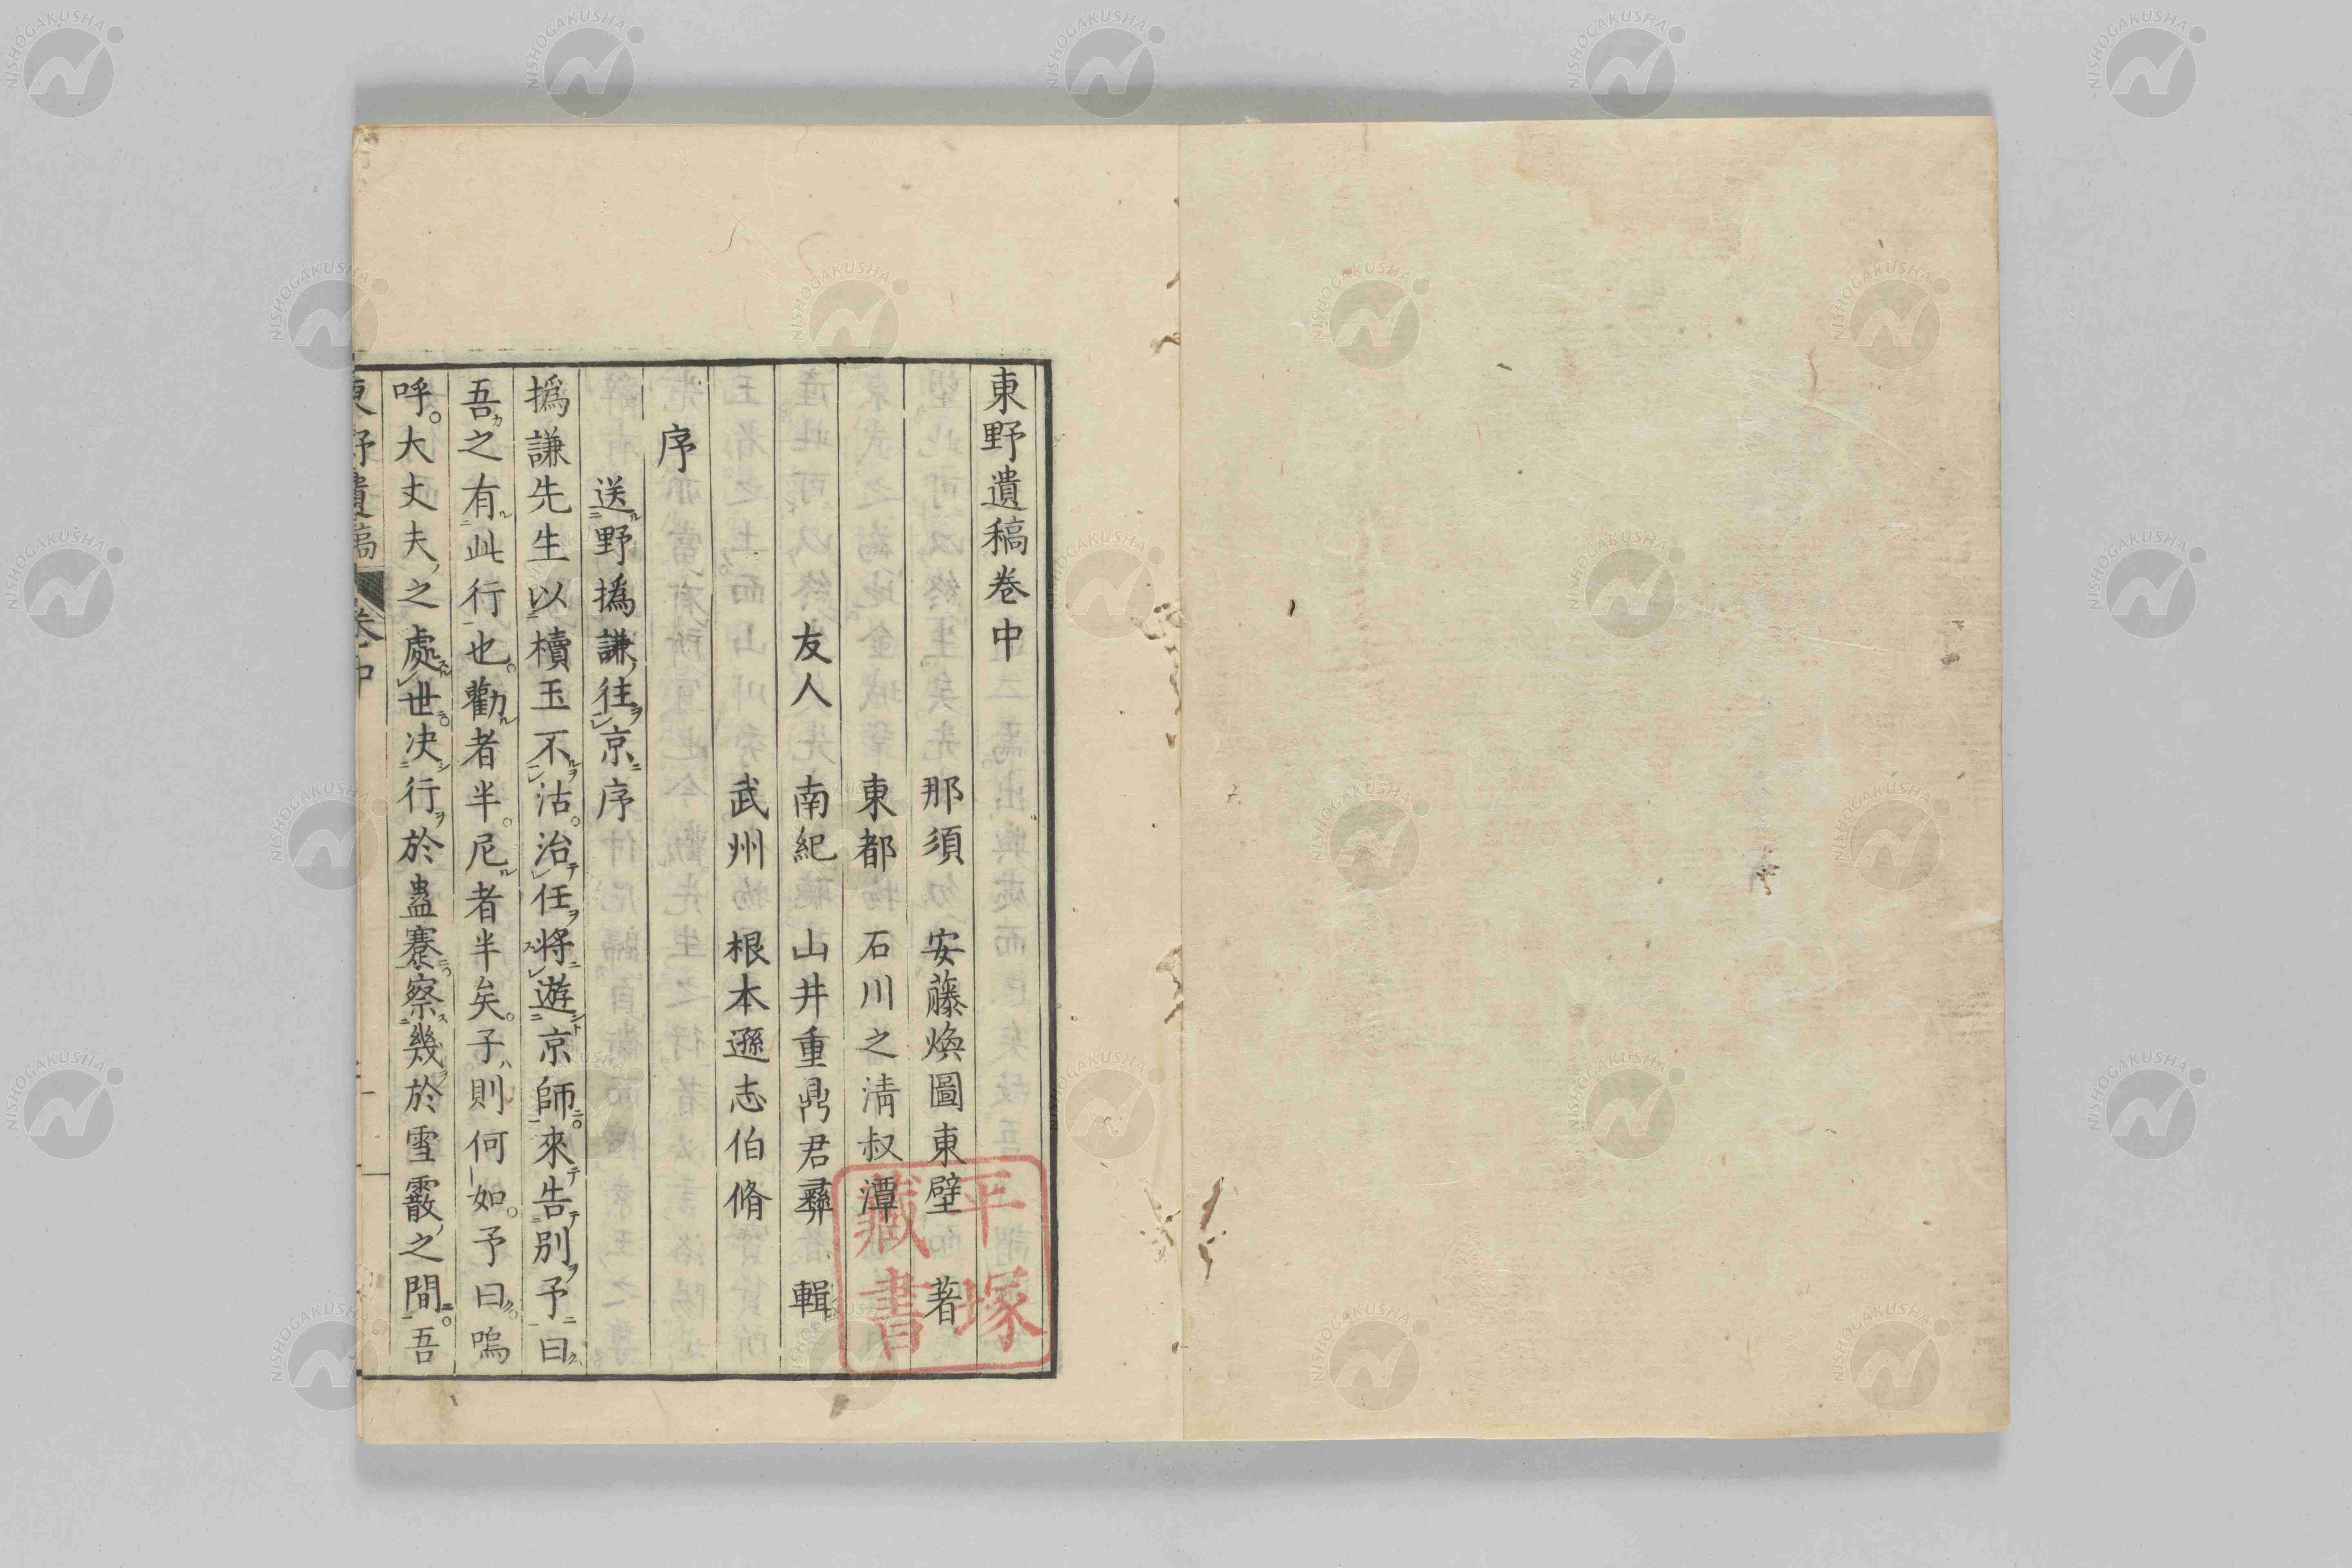 東野遺稿卷中
那須 安藤煥圖東壁 著
東都 石川之淸叔潭
友人 南紀 山井重鼎君彝 輯
武州 根本遜志伯脩
序
送野撝謙往京序
撝謙先生以櫝玉不沽。治任將遊京師。來告別予曰
吾之有此行也。勸者半。尼者半矣。子則何如。予曰。嗚
呼。大丈夫之處世。决行於蠱蹇。察幾於雪霰之間。吾
東野遺稿 卷中
平塚藏書
NISHOGAKUSHA